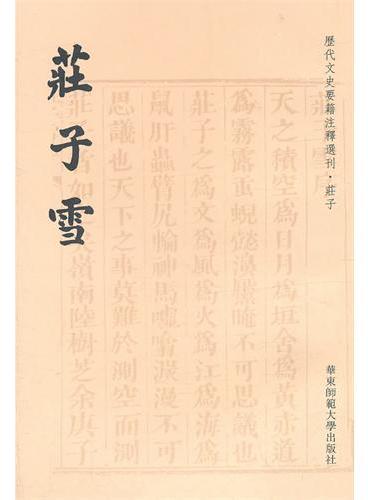 莊子雪
歷代文史要籍注釋選刊·莊子
華東師範大學出版社
天之積空爲日月爲垣舍爲黃赤道
爲霧露重蜺不可思議也
莊子之爲文爲風爲火爲江爲海爲
鼠肝蟲臂尻輪神馬漫不可
思議也天下之事莫難於測空而測
嶺南陸樹芝余庚子